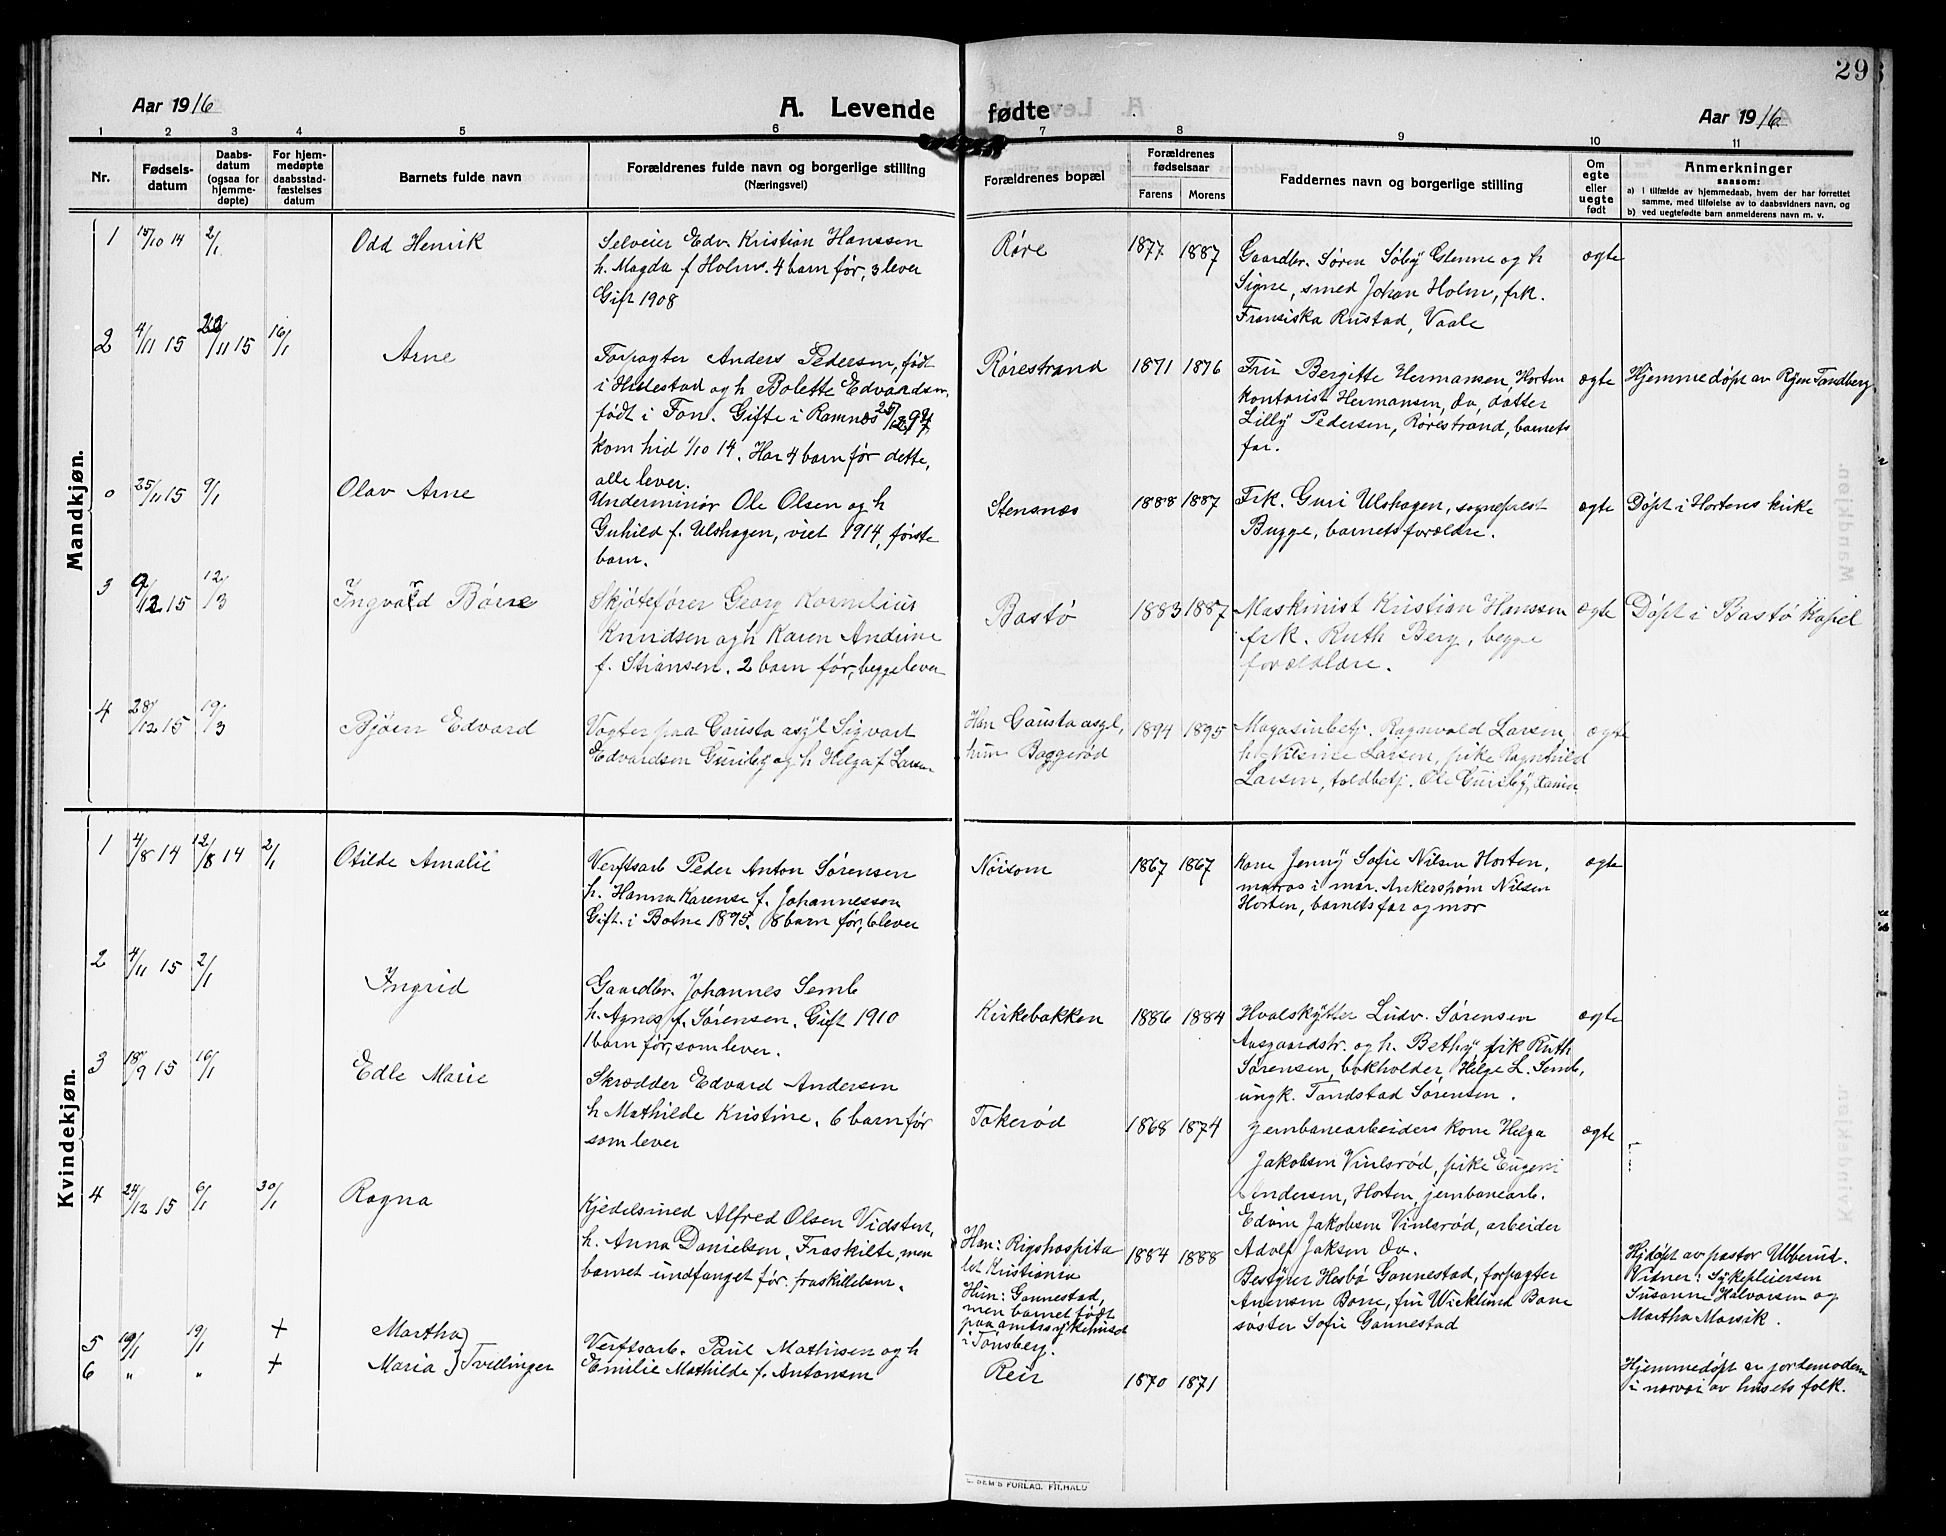 29
Aar 1916
A. Levende fødte
Aar 1916
1 2 3 4 5 6 7 8 9 10 11
Nr.
Fødsels-
datum
Daabs-
datum
(ogsaa for
hjemme-
døpte)
For hjem-
medøpte
daabsstad-
fæstelses
datum
Barnets fulde navn
Forældrenes fulde navn og borgerlige stilling
(Næringsvei)
Forældrenes bopæl
Forældrenes
fødselsaar
Farens Morens
Faddernes navn og borgerlige stilling
Om
egte
eller
uegte
født
Anmerkninger
saasom:
a) i tilfælde av hjemmedaab, hvem der har forrettet
samme, med tilføielse av to daabsvidners navn, og
b) ved uegtefødte barn anmelderens navn m. v.
Mandkjøn.
1 15/10 14 2/1
Odd Henrik
Selveier Edv. Kristian Hanssen
h. Magda f Holm. 4 barn før, 3 lever
Gift 1908
Røre
1877 1887
Gaardbr. Søren Søby Glenne og h
Signe, smed Johan Holm, frk.
Fransiska Rustad, Vaale
ægte
2 4/11 15 /11 15 16/1
Arne
Forpagter Anders Pedersen, født
i Hillestad og h Bolette Edvardsen,
født i Fon. Gifte i Ramnes
kom hid 1/10 14. Har 4 barn før dette,
alle lever.
Rørestrand
1871 1876
Fru Bergitte Hermansen, Horten
kontorist Hermansen, do, datter
Lilly Pedersen, Rørestrand, barnets
far.
ægte
Hjemmedøpt av Tandberg
0 25/11 15 9/1
Olav Arne
Underminør Ole Olsen og h
Guhild f. Ulshagen, viet 1914, første
barn.
Stensnæs
1888 1887
Frk. Guri Ulshagen, sogneprest
Bugge, barnets forældre.
ægte
Døpt i Hortens kirke
3 9/12 15 12/3
Ingvald Børre
Skjøtefører Georg Kornelius
Knudsen og h Karen Andrine
f. Stiansen. 2 barn før, begge lever
Bastø
1883 1887
Maskinist Kristian Hanssen
frk. Ruth Berg, begge
forældre.
ægte
Døpt i Bastø Kapel
4 28/12 15 19/3
Bjørn Edvard
Vogter paa Gausta asyl Sigvart
Edvardsen Guriby og h Helga f Larsen
Han Gausta asyl,
hun Baggerød
1894 1895
Magasinbetj. Ragnvald Larsen,
h. Nilsine Larsen, pike Ragnhild
Larsen, toldbetj. Ole Guriby,
ægte
Kvindekjøn.
1 4/8 14 12/8 14 2/1
Otilde Amalie
Verftsarb Peder Anton Sørensen
h. Hanna Karense f. Johannessen
Gift i Botne 1895. 8 barn før, 6 lever
Nøisom
1867 1867
Kone Jenny Sofie Nilsen Horten,
matros i mar. Ankershøm Nilsen
Horten, barnets far og mor
ægte
2 4/11 15 2/1
Ingrid
Gaardbr. Johannes Semb
h. Agnes f. Sørensen. Gift 1910
1 barn før, som lever.
Kirkebakken
1886 1884
Hvalskytter Ludv. Sørensen
Aasgaardstr. og h. Bethy, frk Ruth
Sørensen, bokholder Helge L. Semb,
ungk. Tandstad Sørensen.
ægte
3 18/9 15 16/1
Edle Marie
Skrædder Edvard Andersen
h Mathilde Kristine. 6 barn før
som lever
Takerød
1868 1874
Jernbanearbeiders kone Helga
Jakobsen Vinlsrød, pike Eugeni
Andersen, Horten, jernbanearb.
Edvin Jakobsen Vinlsrød, arbeider
Adolf Jaksen do.
ægte
4 24/12 15 6/1 30/1
Ragna
Kjedelsmed Alfred Olsen Vidsten,
h. Anna Danielsen. Fraskilte, men
barnet undfanget før fraskillelsen.
Han: Rigshospita
let Kristiania
Hun: Gannestad,
men barnet født
paa amtssykehuset
i Tønsberg.
1884 1888
Bestyrer Hesbø Gannestad, forpagter
Arensen Borre, fru Wicklund Borre
søster Sofie Gannestad
Hjdøpt av pastor Ubberud.
Vidner: Sykepleiersen
Susanne Halvorsen og
Martha Marsik.
5 19/1 19/1 +
6 " " +
Martha
Maria } Tvillinger
Verftsarb. Paul Mathisen og h
Emilie Mathilde f. Antonsen
Reir
1870 1871
Hjemmedøpt av jordemoderen
i nærvær av husets folk.
E. SEM'S FORLAG. FR.HALD